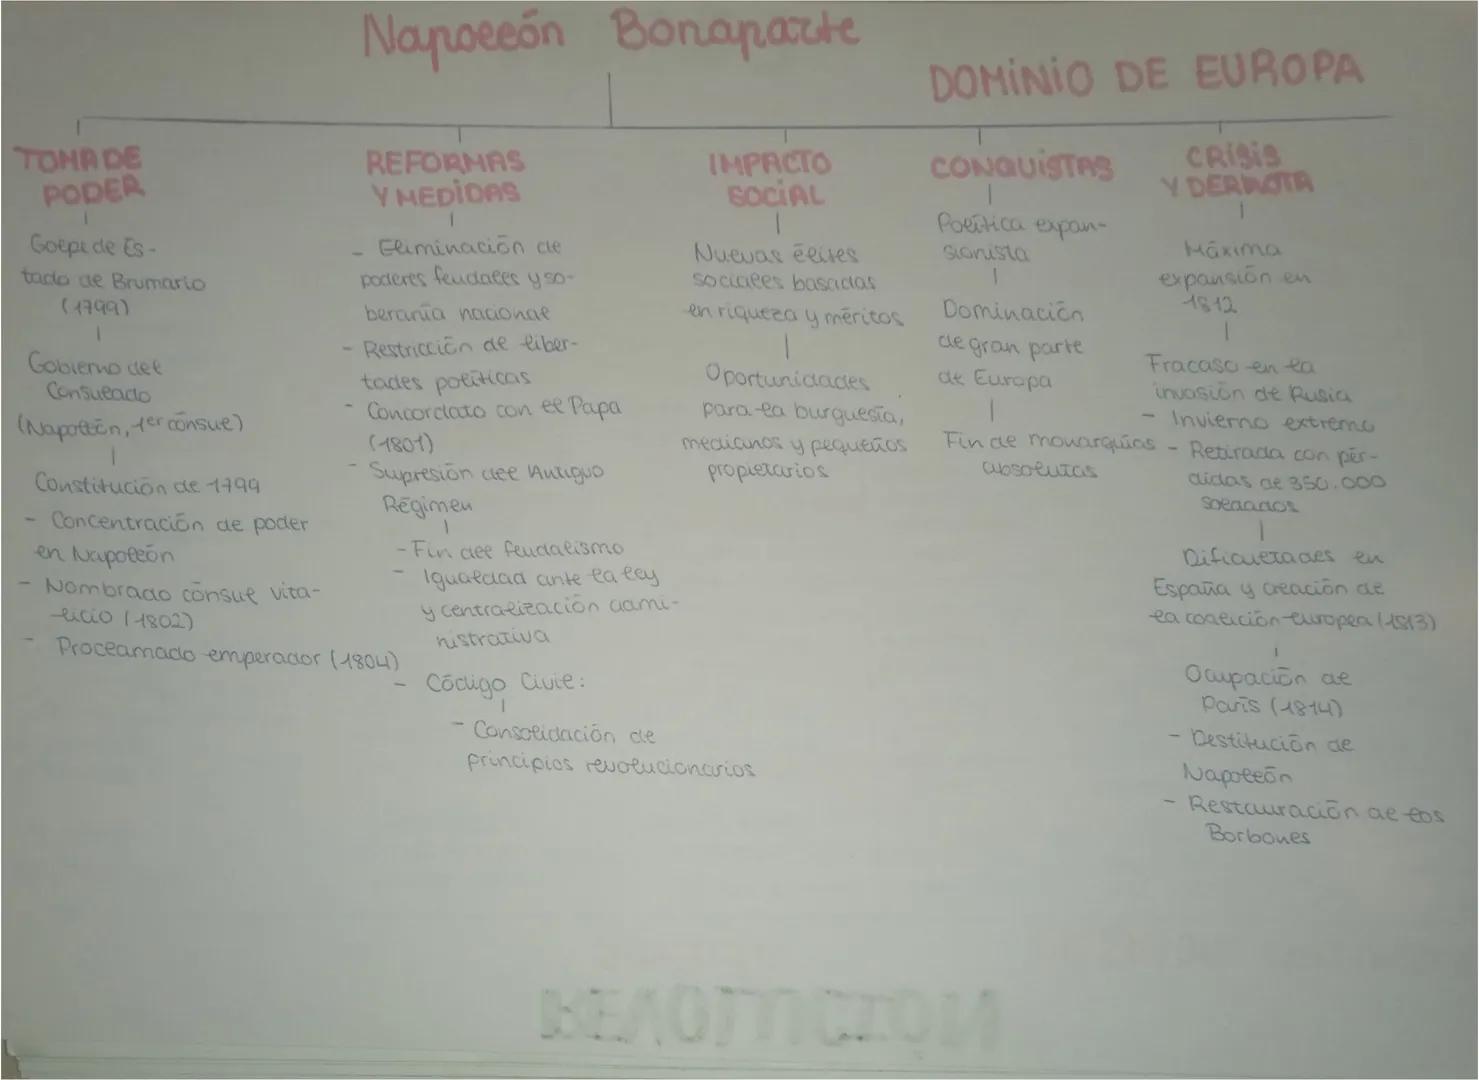 Napoleón Bonaparte
DOMINIO DE EUROPA
TOMA DE
PODER
Golpe de Es-
tado de Brumario
(1799)
Gobierno del
Consulado
(Napoleón, 1er cónsul)
Constitución de 1799
- Concentración de poder
en Napoleón
- Nombrado cónsul vita-
licio (1802)
- Proclamado emperador (1804)
REFORMAS
Y MEDIDAS
- Eliminación de
poderes feudales y so-
beranía nacional
- Restricción de liber-
tades políticas
- Concordato con el Papa
(1801)
- Supresión del Antiguo
Régimen
- Fin del feudalismo
- Igualdad ante la ley
y centralización admi-
nistrativa
- Código Civil:
- Consolidación de
principios revolucionarios
IMPACTO
SOCIAL
Nuevas élites
sociales basadas
en riqueza y méritos
Oportunidades
para la burguesía,
medianos y pequeños
propietarios
CONQUISTAS
Política expan-
sionista
Dominación
de gran parte
de Europa
Fin de monarquías
absolutas
CRISIS
Y DERROTA
Máxima
expansión en
1812
Fracaso en la
invasión de Rusia
- Invierno extremo
- Retirada con pér-
didas de 350.000
soldados
Dificultades en
España y creación de
la coalición europea (1813)
Ocupación de
París (1814)
- Destitución de
Napoleón
- Restauración de los
Borbones
REVOLUCION